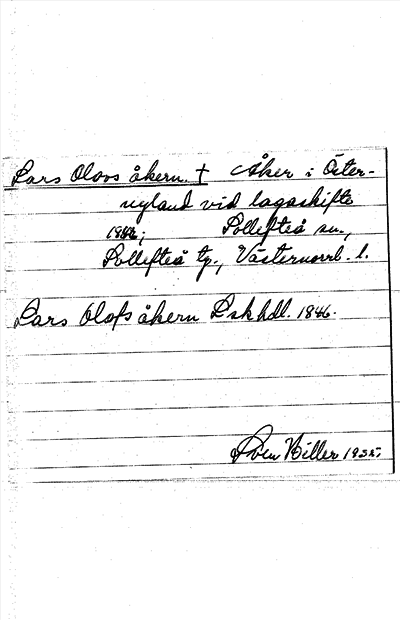 Lars Olovs åkern. † Åker i Öster-
nyland vid lagaskifte
1846; Sollefteå sn.,
Sollefteå tg., Västernorrl. l.
Lars Olofs åkern Lskhdl. 1846.
Sven Biller 1935;